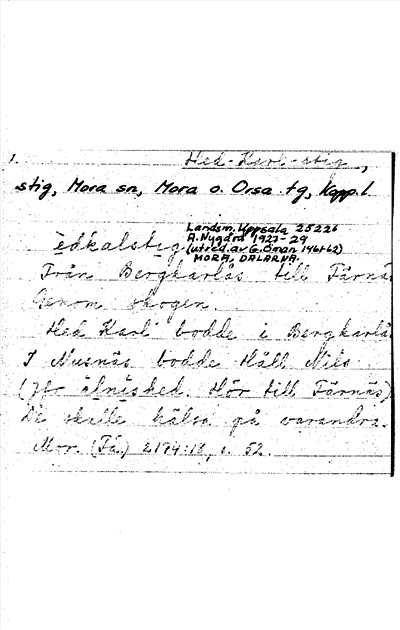 1. Hed-Karl-stig,
stig, Mora sn, Mora o. Orsa tg, Kopp. l.
Landsm. Uppsala 25226
A. Nygård 1927-29
èdkalstig (utred. av G. Öman 1961+62)
MORA, DALARNA.
Från Bergkarlås till Färnäs
Genom skogen.
Hed Karl bodde i Bergkarlås
I Nusnäs bodde Håll Nils
(Jfr älnished. Hör till Färnäs)
De skulle hälsa på varandra.
Mor. (Fä.) 2194:18, s. 52.